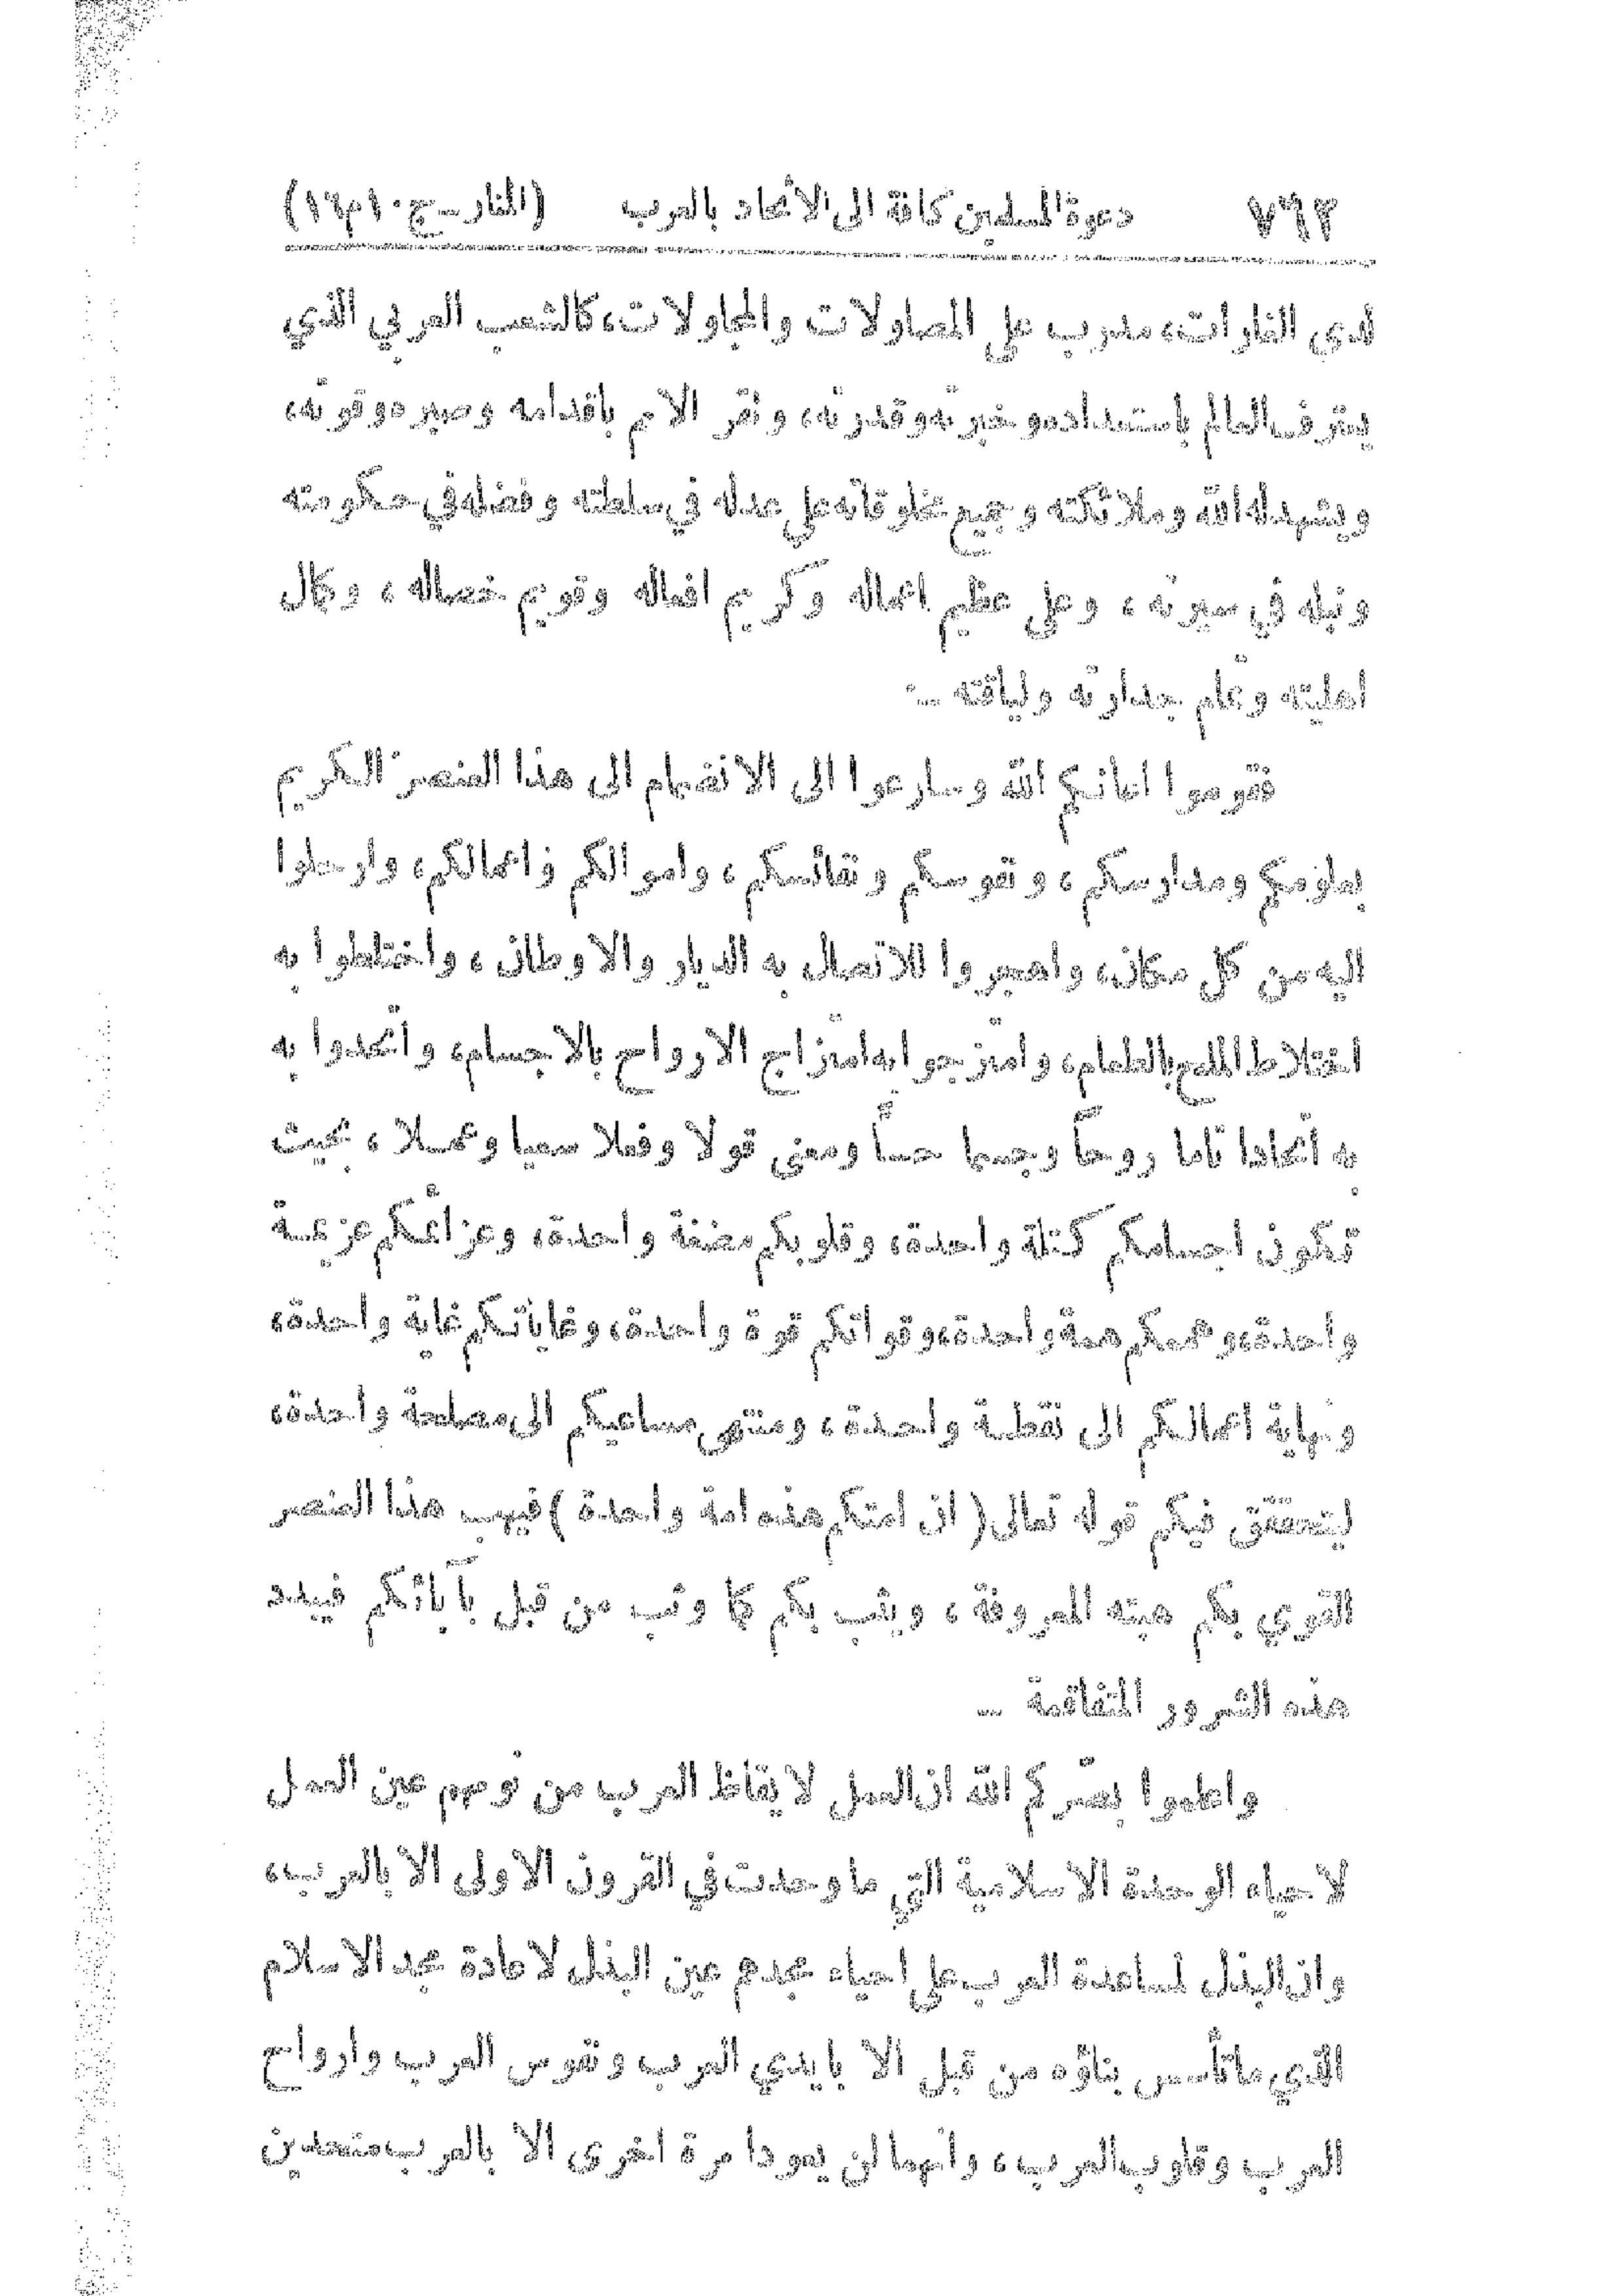 ٧٦٢ دعوة المسلمين كافة الى الاتحاد بالعرب (المنار ـ ج ١٠ م ١٦)
لدى الغارات، مدرب على المصاولات والمجاولات، كالشعب العربي الذي
يعترف العالم باستعداده وخبرته وقدرته، وتقر الامم باقدامه وصبره وقوته،
ويشهد له الله وملائكته وجميع مخلوقاته على عدله في سلطته وفضله في حكومته
ونبله في سيرته، وعلى عظيم اعماله وكريم افعاله وقويم خصاله، وكمال
اهليته وتمام جدارته ولياقته ــ
فقوموا اعانكم الله وسارعوا الى الانضمام الى هذا العنصر الكريم
بعلومكم ومدارسكم، ونفوسكم ونفائسكم، واموالكم واعمالكم، وارحلوا
اليه من كل مكان، واهجروا للاتصال به الديار والاوطان، واختلطوا به
اختلاط الملح بالطعام، وامتزجوا به امتزاج الارواح بالاجسام، واتحدوا به
به أتحادا تاما روحاً وجسما حساً ومعنى قولا وفعلا سعيا وعملا، بحيث
تكون اجسامكم كتلة واحدة، وقلوبكم مضغة واحدة، وعزائمكم عزيمة
واحدة، وهممكم همة واحدة، وقواتكم قوة واحدة، وغاياتكم غاية واحدة،
ونهاية اعمالكم الى نقطة واحدة، ومنتهى مساعيكم الى مصلحة واحدة،
ليتحقق فيكم قوله تعالى (ان امتكم هذه امة واحدة) فيهب هذا العنصر
القوي بكم هبته المعروفة، ويثب بكم كما وثب من قبل بآبائكم فيبدد
هذه الشرور المتفاقمة ــ
واعلموا بصّركم الله ان العمل لايقاظ العرب من نومهم عين العمل
لاحياء الوحدة الاسلامية التي ما وجدت في القرون الاولى الا بالعرب،
وان البذل لمساعدة العرب على احياء مجدهم عين البذل لاعادة مجد الاسلام
الذي ما تأسس بناؤه من قبل الا بايدي العرب ونفوس العرب وارواح
العرب وقلوب العرب، وانهما لن يعودا مرة اخرى الا بالعرب متحدين